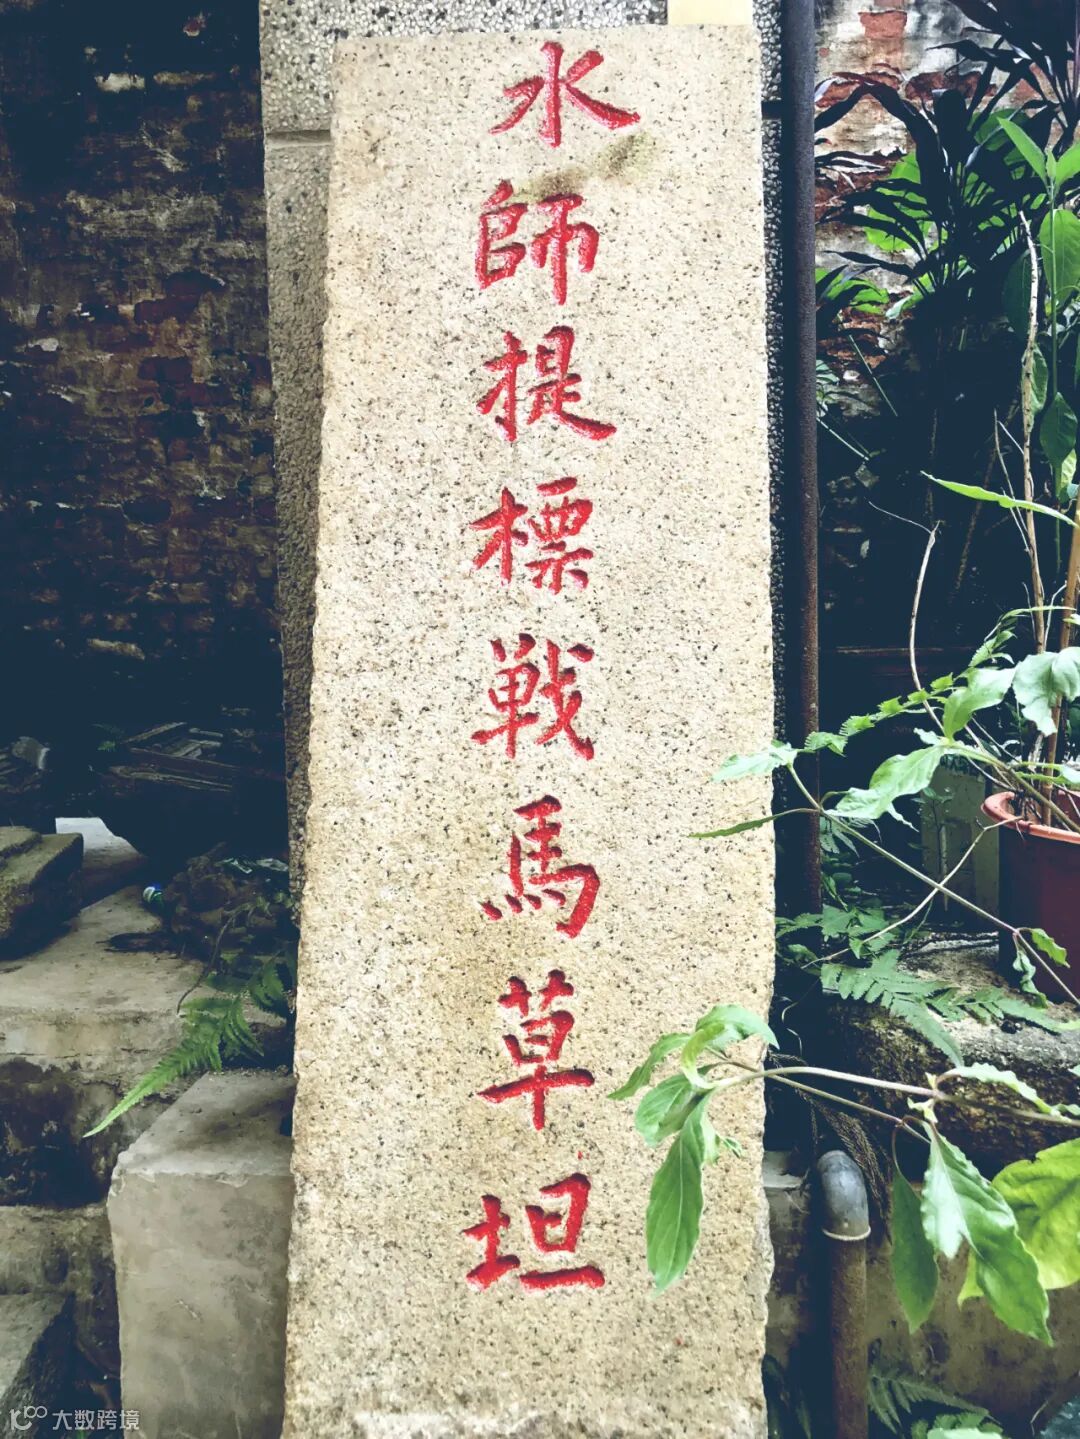 水師提標戦馬草坦
大数跨境